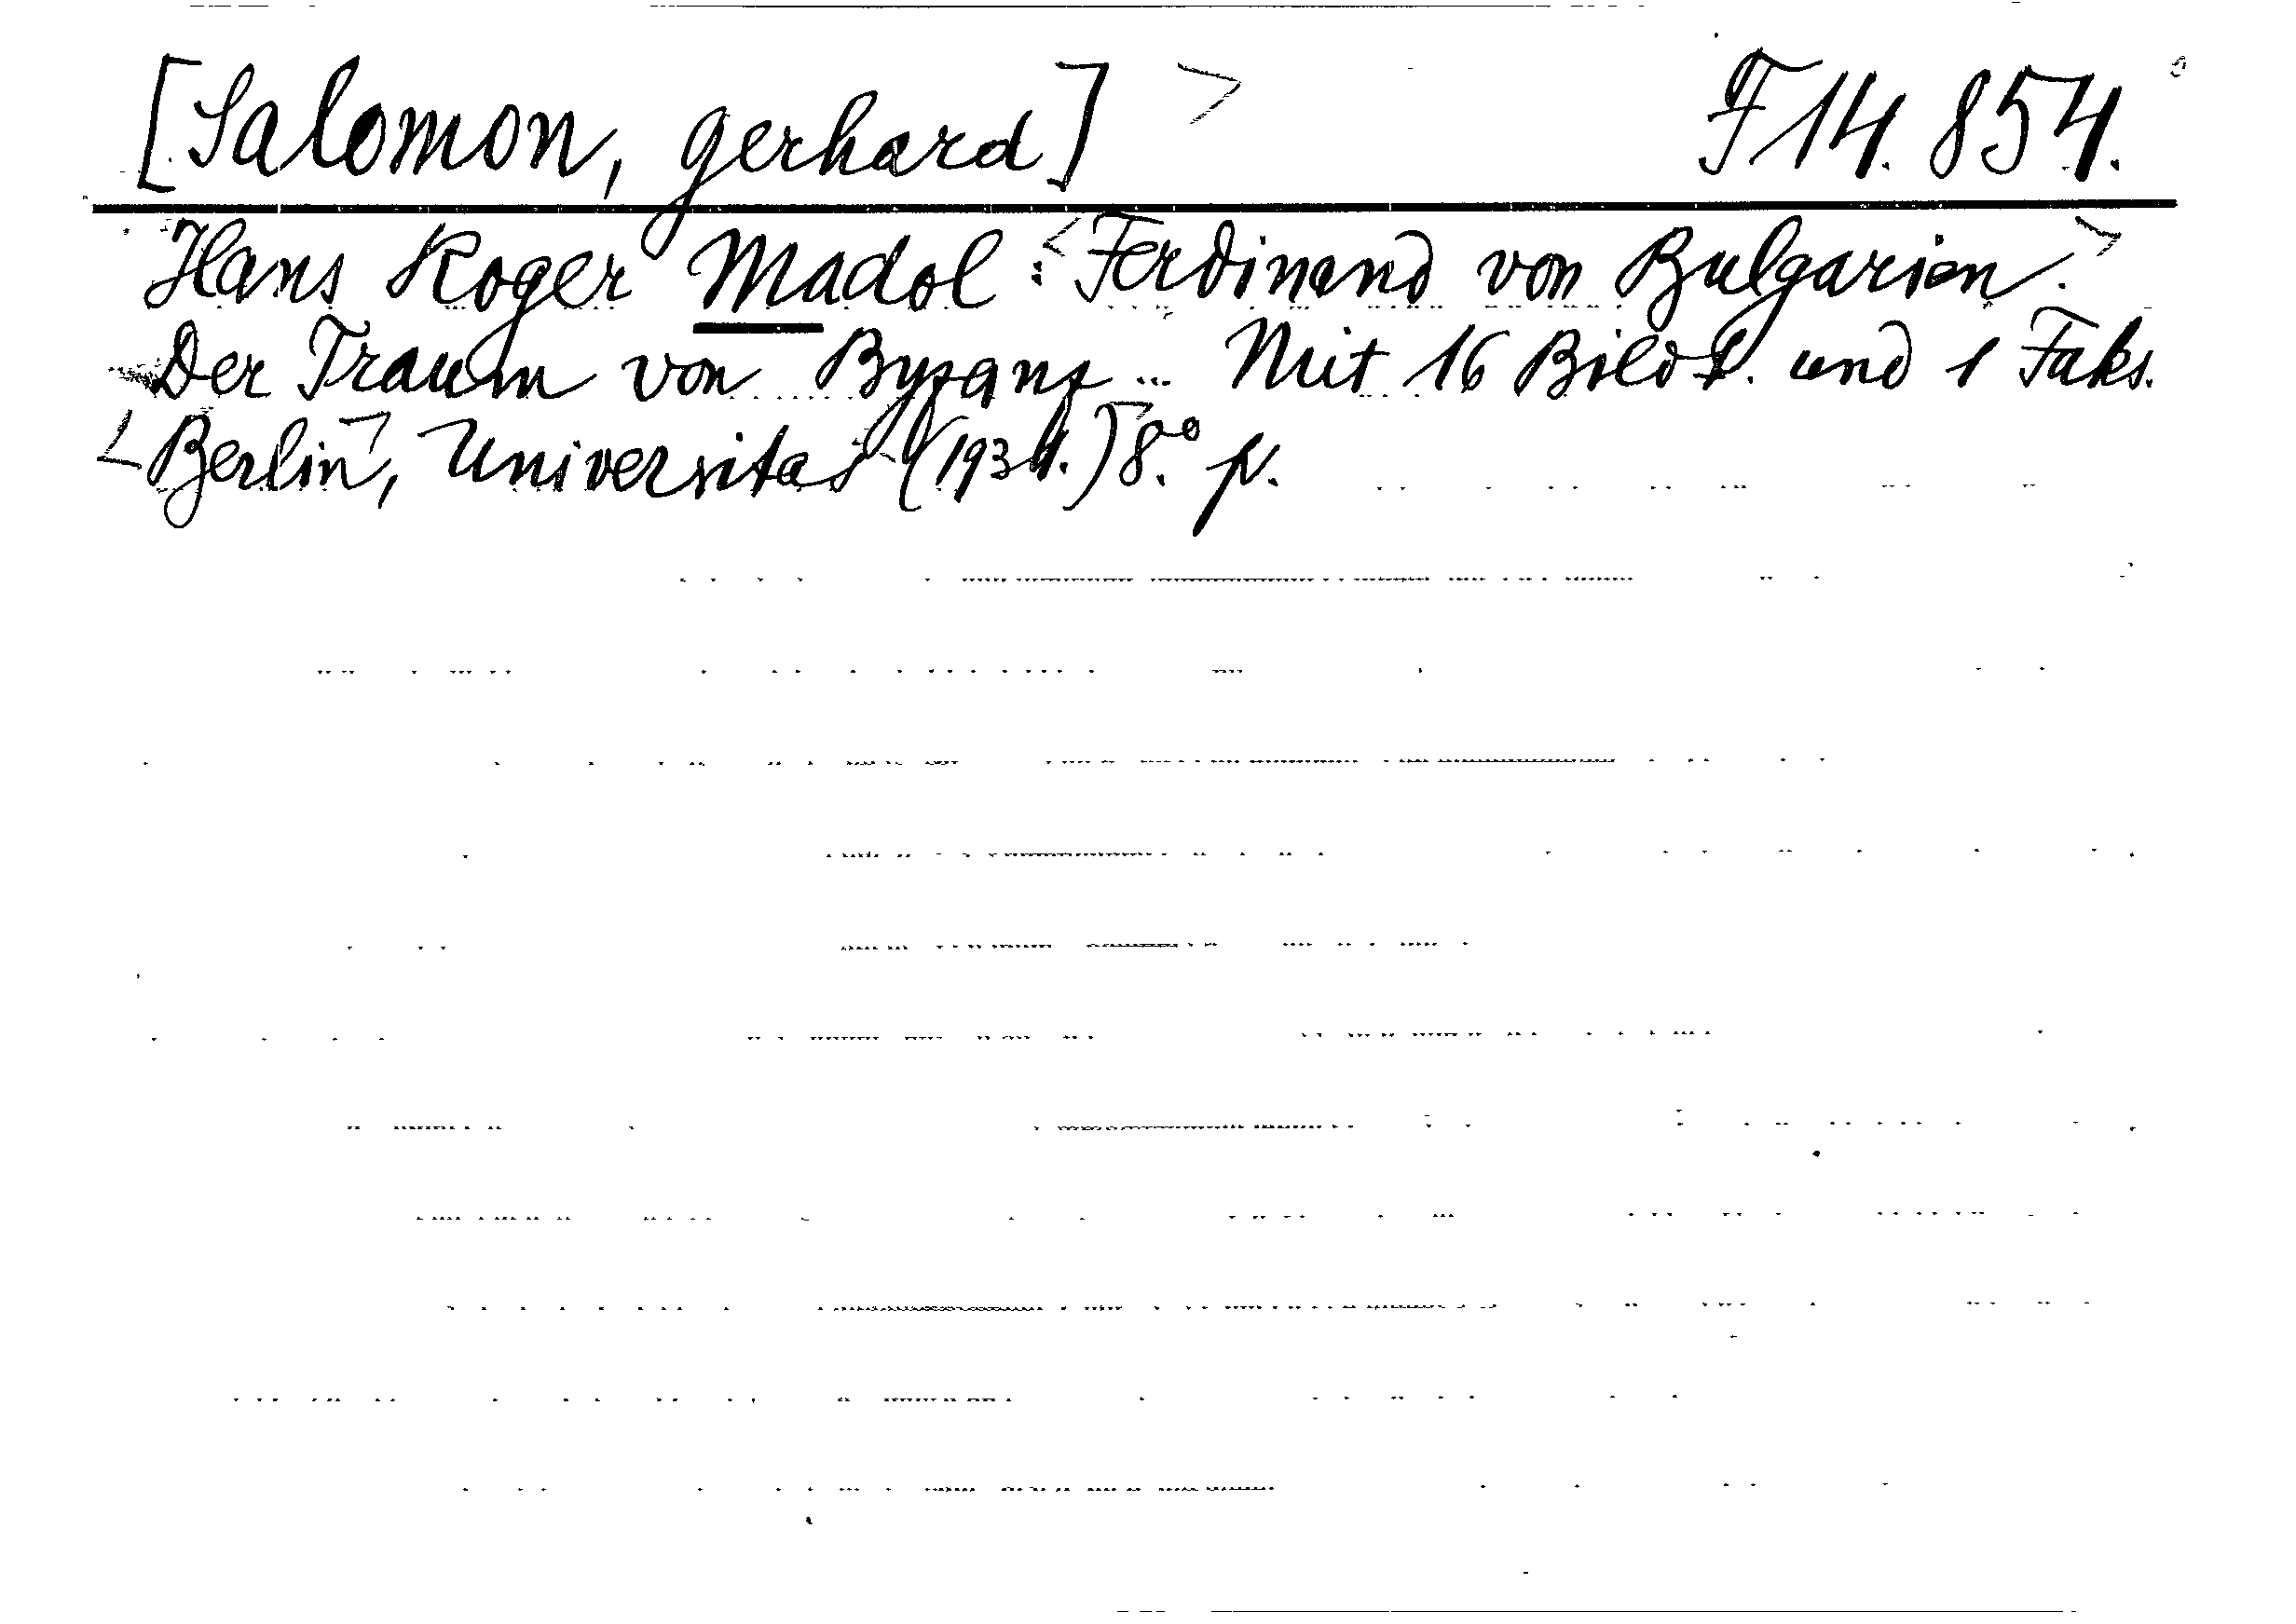 [Salomon, Gerhard] > F 14.854.
Hans Roger Madol: <Ferdinand von Bulgarien.>
Der Traum von Byzanz... Mit 16 Bild T. und 1 Faks.
<Berlin>, Universitas (1934.) 8.° p.